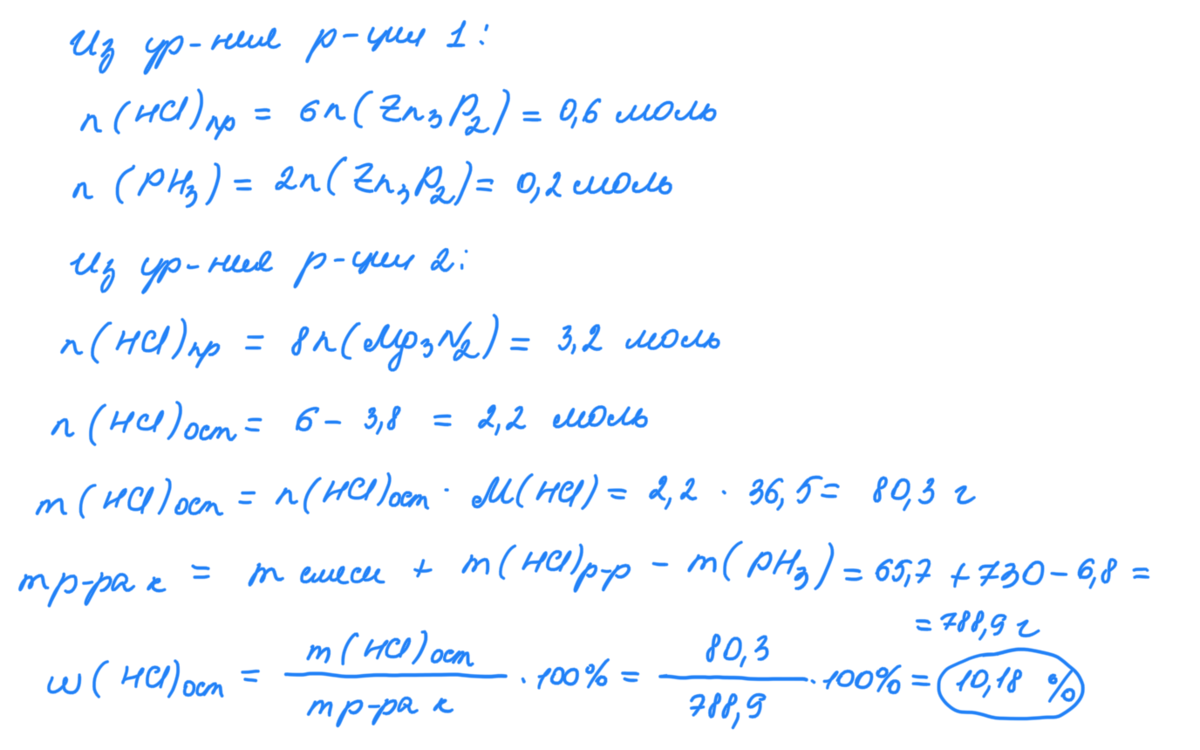 Из ур-ния р-ции 1:
n(HCl)пр = 6n(Zn₃P₂) = 0,6 моль
n (PH₃) = 2n(Zn₃P₂) = 0,2 моль
Из ур-ния р-ции 2:
n(HCl)пр = 8n(Mg₃N₂) = 3,2 моль
n(HCl)ост = 6 - 3,8 = 2,2 моль
m(HCl)ост = n(HCl)ост · M(HCl) = 2,2 · 36,5 = 80,3 г
m р-ра к = m смеси + m(HCl)р-р - m(PH₃) = 65,7 + 730 - 6,8 =
= 788,9 г
w(HCl)ост = m(HCl)ост / m р-ра к · 100% = 80,3 / 788,9 · 100% = 10,18 %